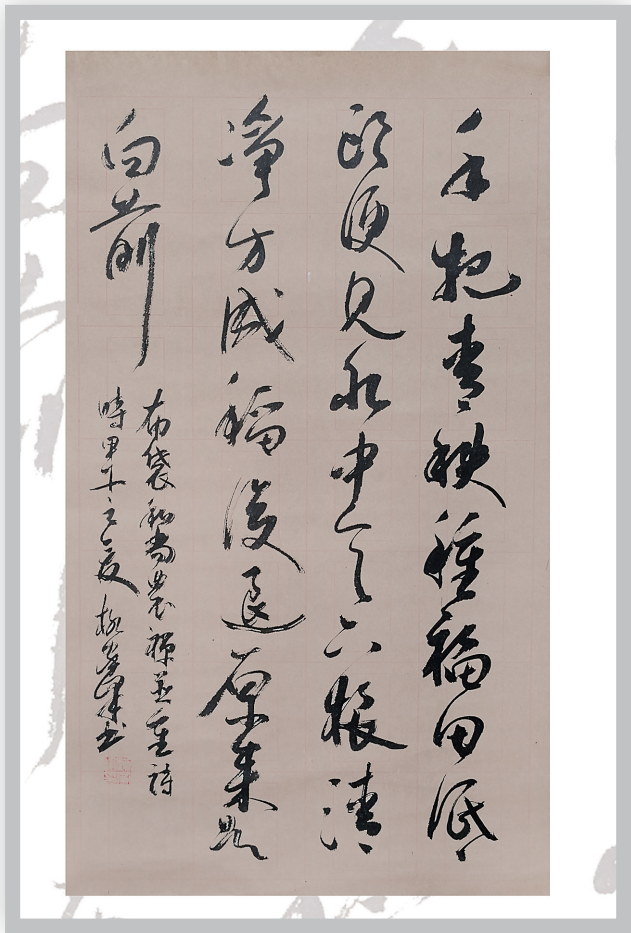 手把青秧種福田低
頭便見水中天六根清
淨方成稻後退原來是
向前
布袋和尚農禪並重詩
時甲午之夏 書